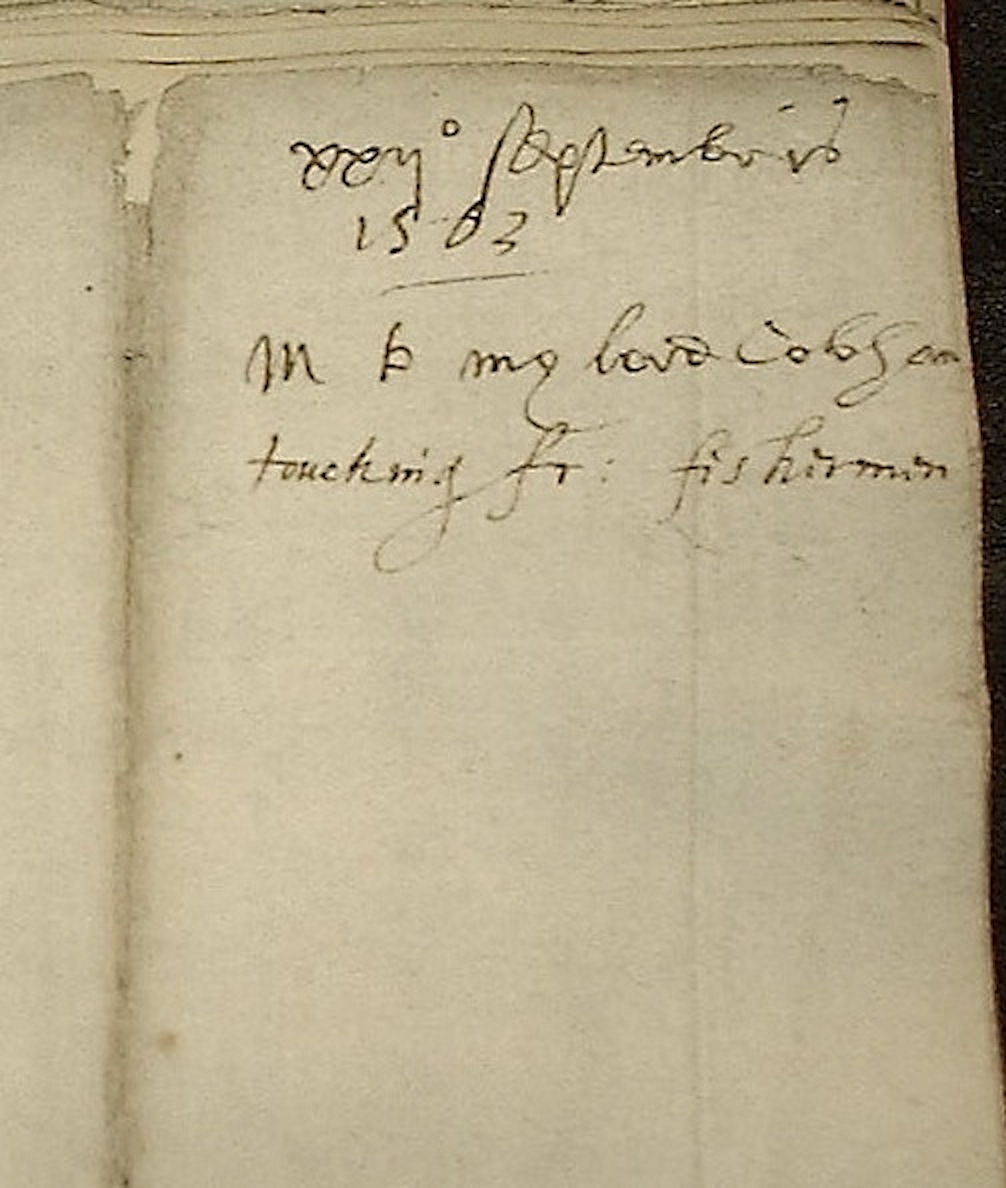 xxij° Septembris
1563
M to my lord Cobham
touching fr: fishermen